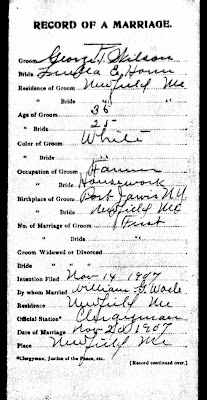 RECORD OF A MARRIAGE.
Groom George T. Wilson
Bride Luella E.
Residence of Groom Newfield Me
" Bride " "
Age of Groom 35
" Bride 25
Color of Groom White
" Bride "
Occupation of Groom Farmer
" Bride Housework
Birthplace of Groom Port Jarvis N.Y.
" Bride Newfield Me
No. of Marriage of Groom First
" Bride "
Groom Widowed or Divorced
Bride " "
Intention Filed Nov 14 1907
By whom Married William G. Wade
Residence Newfield Me
Official Station* Clergyman
Date of Marriage Nov 20 1907
Place Newfield Me
*Clergyman, Justice of the Peace, etc. [Record continued over.]